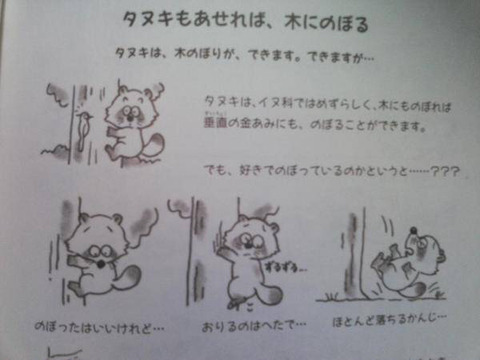 タヌキもあせれば、木にのぼる
タヌキは、木のぼりが、できます。できますが…
タヌキは、イヌ科ではめずらしく、木にものぼれば
垂直の金あみにも、のぼることができます。
でも、好きでのぼっているのかというと……???
ずるずる…
のぼったはいいけれど…
おりるのはへたで…
ほとんど落ちるかんじ…